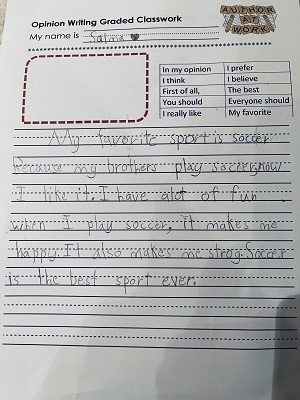 Opinion Writing Graded Classwork
AUTHOR
AT
WORK
My name is Salma
In my opinion I prefer
I think I believe
First of all, The best
You should Everyone should
I really like My favorite
My favorite sport is soccer
Because my brothers play soccer,now
I like it. I have alot of fun
when I play soccer, it makes me
happy.It also makes me strog.Soccer
is the best sport ever.